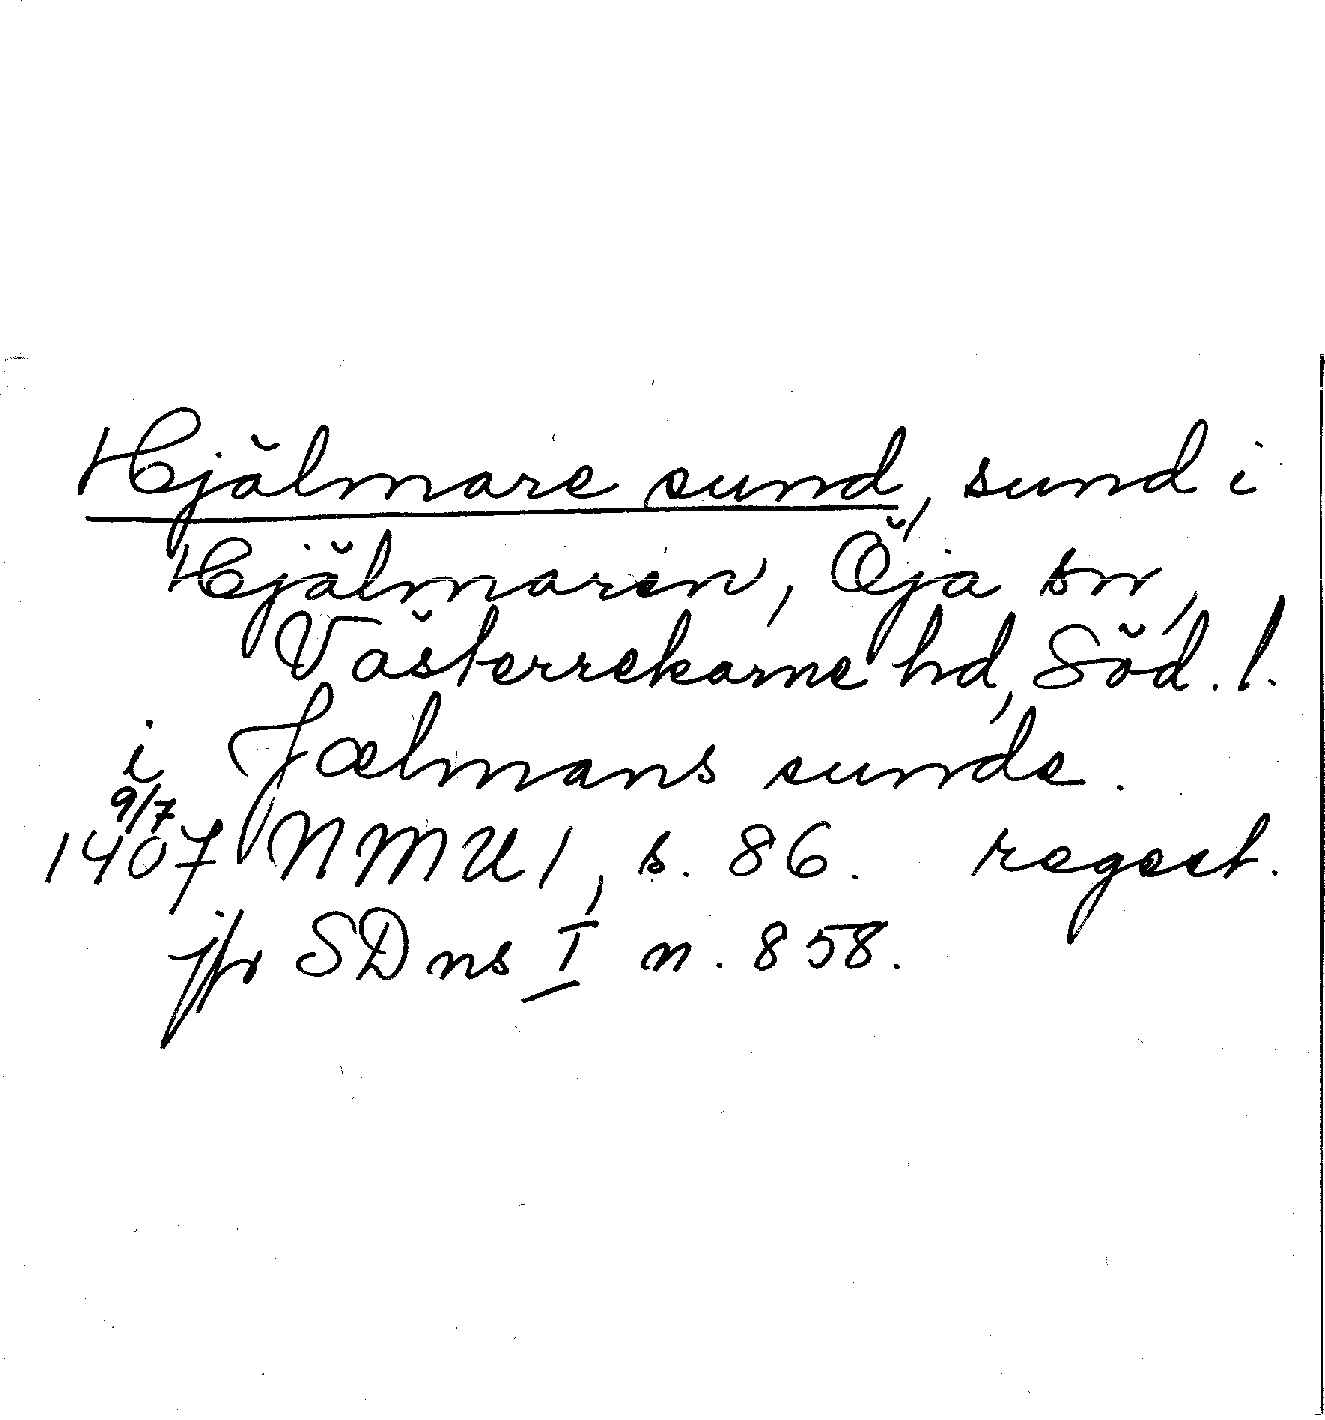 Hjälmare sund, sund i
Hjälmaren, Öja sn,
Västerrekarne hd, Söd. l.
i Jælmans sunde.
9/7
1407 NMU 1, s. 86. regest.
jfr SD ns I n. 858.